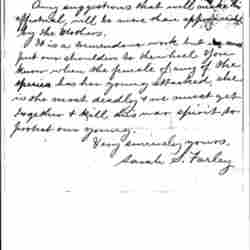 Any suggestions that will make this
effectual, will be more than appreciated
by the Mothers.
It is a tremendous work but
put our shoulders to the wheel. You
know when the female of any of the
species has her young attacked she
is the most deadly & we must get
together & kill this war spirit to
protect our young.
Very sincerely yours,
Sarah S. Farley